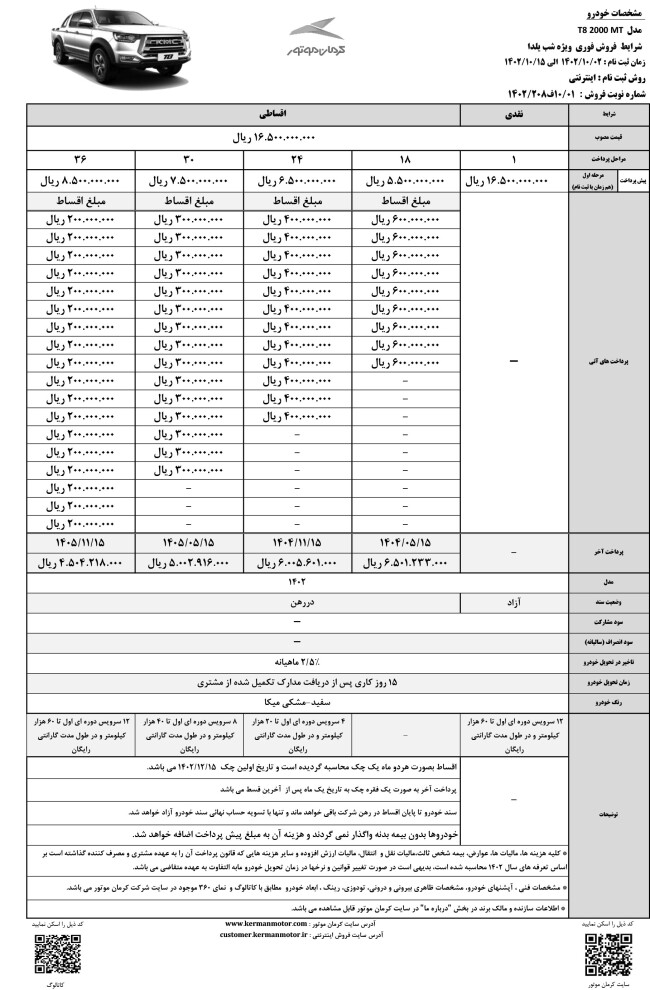 مشخصات خودرو
مدل T8 2000 MT
شرایط فروش فوری ویژه شب یلدا
زمان ثبت نام : ۱۴۰۲/۱۰/۰۲ الی ۱۴۰۲/۱۰/۱۵
روش ثبت نام : اینترنتی
شماره نوبت فروش : ۱۰/۰۱ف۱۴۰۲/۲۰۸
کرمان موتور
KMC
T8
شرایط نقدی اقساطی
قیمت مصوب ۱۶.۵۰۰.۰۰۰.۰۰۰ ریال
مراحل پرداخت ۱ ۱۸ ۲۴ ۳۰ ۳۶
پیش پرداخت مرحله اول (هم زمان با ثبت نام) ۱۶.۵۰۰.۰۰۰.۰۰۰ ریال ۵.۵۰۰.۰۰۰.۰۰۰ ریال ۶.۵۰۰.۰۰۰.۰۰۰ ریال ۷.۵۰۰.۰۰۰.۰۰۰ ریال ۸.۵۰۰.۰۰۰.۰۰۰ ریال
مبلغ اقساط مبلغ اقساط مبلغ اقساط مبلغ اقساط
۶۰۰.۰۰۰.۰۰۰ ریال ۴۰۰.۰۰۰.۰۰۰ ریال ۳۰۰.۰۰۰.۰۰۰ ریال ۲۰۰.۰۰۰.۰۰۰ ریال
۶۰۰.۰۰۰.۰۰۰ ریال ۴۰۰.۰۰۰.۰۰۰ ریال ۳۰۰.۰۰۰.۰۰۰ ریال ۲۰۰.۰۰۰.۰۰۰ ریال
۶۰۰.۰۰۰.۰۰۰ ریال ۴۰۰.۰۰۰.۰۰۰ ریال ۳۰۰.۰۰۰.۰۰۰ ریال ۲۰۰.۰۰۰.۰۰۰ ریال
۶۰۰.۰۰۰.۰۰۰ ریال ۴۰۰.۰۰۰.۰۰۰ ریال ۳۰۰.۰۰۰.۰۰۰ ریال ۲۰۰.۰۰۰.۰۰۰ ریال
۶۰۰.۰۰۰.۰۰۰ ریال ۴۰۰.۰۰۰.۰۰۰ ریال ۳۰۰.۰۰۰.۰۰۰ ریال ۲۰۰.۰۰۰.۰۰۰ ریال
۶۰۰.۰۰۰.۰۰۰ ریال ۴۰۰.۰۰۰.۰۰۰ ریال ۳۰۰.۰۰۰.۰۰۰ ریال ۲۰۰.۰۰۰.۰۰۰ ریال
۶۰۰.۰۰۰.۰۰۰ ریال ۴۰۰.۰۰۰.۰۰۰ ریال ۳۰۰.۰۰۰.۰۰۰ ریال ۲۰۰.۰۰۰.۰۰۰ ریال
۶۰۰.۰۰۰.۰۰۰ ریال ۴۰۰.۰۰۰.۰۰۰ ریال ۳۰۰.۰۰۰.۰۰۰ ریال ۲۰۰.۰۰۰.۰۰۰ ریال
پرداخت های آتی – ۶۰۰.۰۰۰.۰۰۰ ریال ۴۰۰.۰۰۰.۰۰۰ ریال ۳۰۰.۰۰۰.۰۰۰ ریال ۲۰۰.۰۰۰.۰۰۰ ریال
– ۴۰۰.۰۰۰.۰۰۰ ریال ۳۰۰.۰۰۰.۰۰۰ ریال ۲۰۰.۰۰۰.۰۰۰ ریال
– ۴۰۰.۰۰۰.۰۰۰ ریال ۳۰۰.۰۰۰.۰۰۰ ریال ۲۰۰.۰۰۰.۰۰۰ ریال
– ۴۰۰.۰۰۰.۰۰۰ ریال ۳۰۰.۰۰۰.۰۰۰ ریال ۲۰۰.۰۰۰.۰۰۰ ریال
– – ۳۰۰.۰۰۰.۰۰۰ ریال ۲۰۰.۰۰۰.۰۰۰ ریال
– – ۳۰۰.۰۰۰.۰۰۰ ریال ۲۰۰.۰۰۰.۰۰۰ ریال
– – ۳۰۰.۰۰۰.۰۰۰ ریال ۲۰۰.۰۰۰.۰۰۰ ریال
– – – ۲۰۰.۰۰۰.۰۰۰ ریال
– – – ۲۰۰.۰۰۰.۰۰۰ ریال
– – – ۲۰۰.۰۰۰.۰۰۰ ریال
پرداخت آخر – ۱۴۰۴/۰۵/۱۵ ۱۴۰۴/۱۱/۱۵ ۱۴۰۵/۰۵/۱۵ ۱۴۰۵/۱۱/۱۵
۶.۵۰۱.۲۳۳.۰۰۰ ریال ۶.۰۰۵.۶۰۱.۰۰۰ ریال ۵.۰۰۲.۹۱۶.۰۰۰ ریال ۴.۵۰۴.۲۱۸.۰۰۰ ریال
مدل ۱۴۰۲
وضعیت سند آزاد دررهن
سود مشارکت –
سود انصراف (سالیانه) –
تاخیر در تحویل خودرو ۲/۵٪ ماهیانه
زمان تحویل خودرو ۱۵ روز کاری پس از دریافت مدارک تکمیل شده از مشتری
رنگ خودرو سفید-مشکی میکا
۱۲ سرویس دوره ای اول تا ۶۰ هزار – ۴ سرویس دوره ای اول تا ۲۰ هزار ۸ سرویس دوره ای اول تا ۴۰ هزار ۱۲ سرویس دوره ای اول تا ۶۰ هزار
کیلومتر و در طول مدت گارانتی کیلومتر و در طول مدت گارانتی کیلومتر و در طول مدت گارانتی کیلومتر و در طول مدت گارانتی
رایگان رایگان رایگان رایگان
اقساط بصورت هردو ماه یک چک محاسبه گردیده است و تاریخ اولین چک ۱۴۰۲/۱۲/۱۵ می باشد.
پرداخت آخر به صورت یک فقره چک به تاریخ یک ماه پس از آخرین قسط می باشد
توضیحات –
سند خودرو تا پایان اقساط در رهن شرکت باقی خواهد ماند و تنها با تسویه حساب نهائی سند خودرو آزاد خواهد شد.
خودروها بدون بیمه بدنه واگذار نمی گردند و هزینه آن به مبلغ پیش پرداخت اضافه خواهد شد.
* کلیه هزینه ها، مالیات ها، عوارض، بیمه شخص ثالث،مالیات نقل و انتقال، مالیات ارزش افزوده و سایر هزینه هایی که قانون پرداخت آن را به عهده مشتری و مصرف کننده گذاشته است بر
اساس تعرفه های سال ۱۴۰۲ محاسبه شده است، بدیهی است در صورت تغییر قوانین و نرخها در زمان تحویل خودرو مابه التفاوت به عهده متقاضی می باشد.
* مشخصات فنی ، آپشنهای خودرو، مشخصات ظاهری بیرونی و درونی، تودوزی، رینگ ، ابعاد خودرو مطابق با کاتالوگ و نمای ۳۶۰ موجود در سایت شرکت کرمان موتور می باشد.
* اطلاعات سازنده و مالک برند در بخش "درباره ما" در سایت کرمان موتور قابل مشاهده می باشد.
کد ذیل را اسکن نمایید
آدرس سایت کرمان موتور : www.kermanmotor.com
آدرس سایت فروش اینترنتی : customer.kermanmotor.ir
کد ذیل را اسکن نمایید
سایت کرمان موتور
کاتالوگ